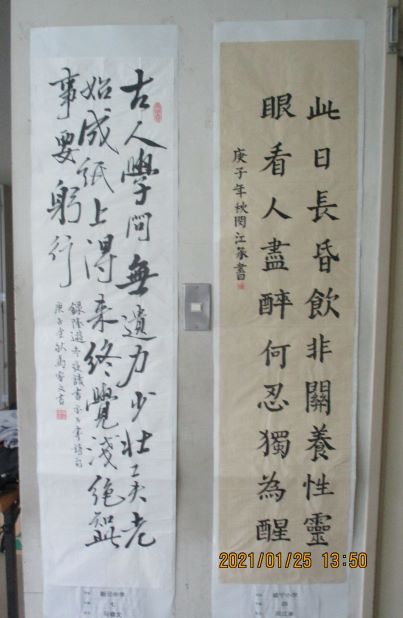 此日長昏飲非關養性靈
眼看人盡醉何忍獨為醒
庚子年秋
書
古人學問無遺力少壯工夫老
始成紙上得来終覺淺絶知此
事要躬行
錄陸遊冬夜讀書示子聿詩句
庚子
書
2021/01/25 13:50